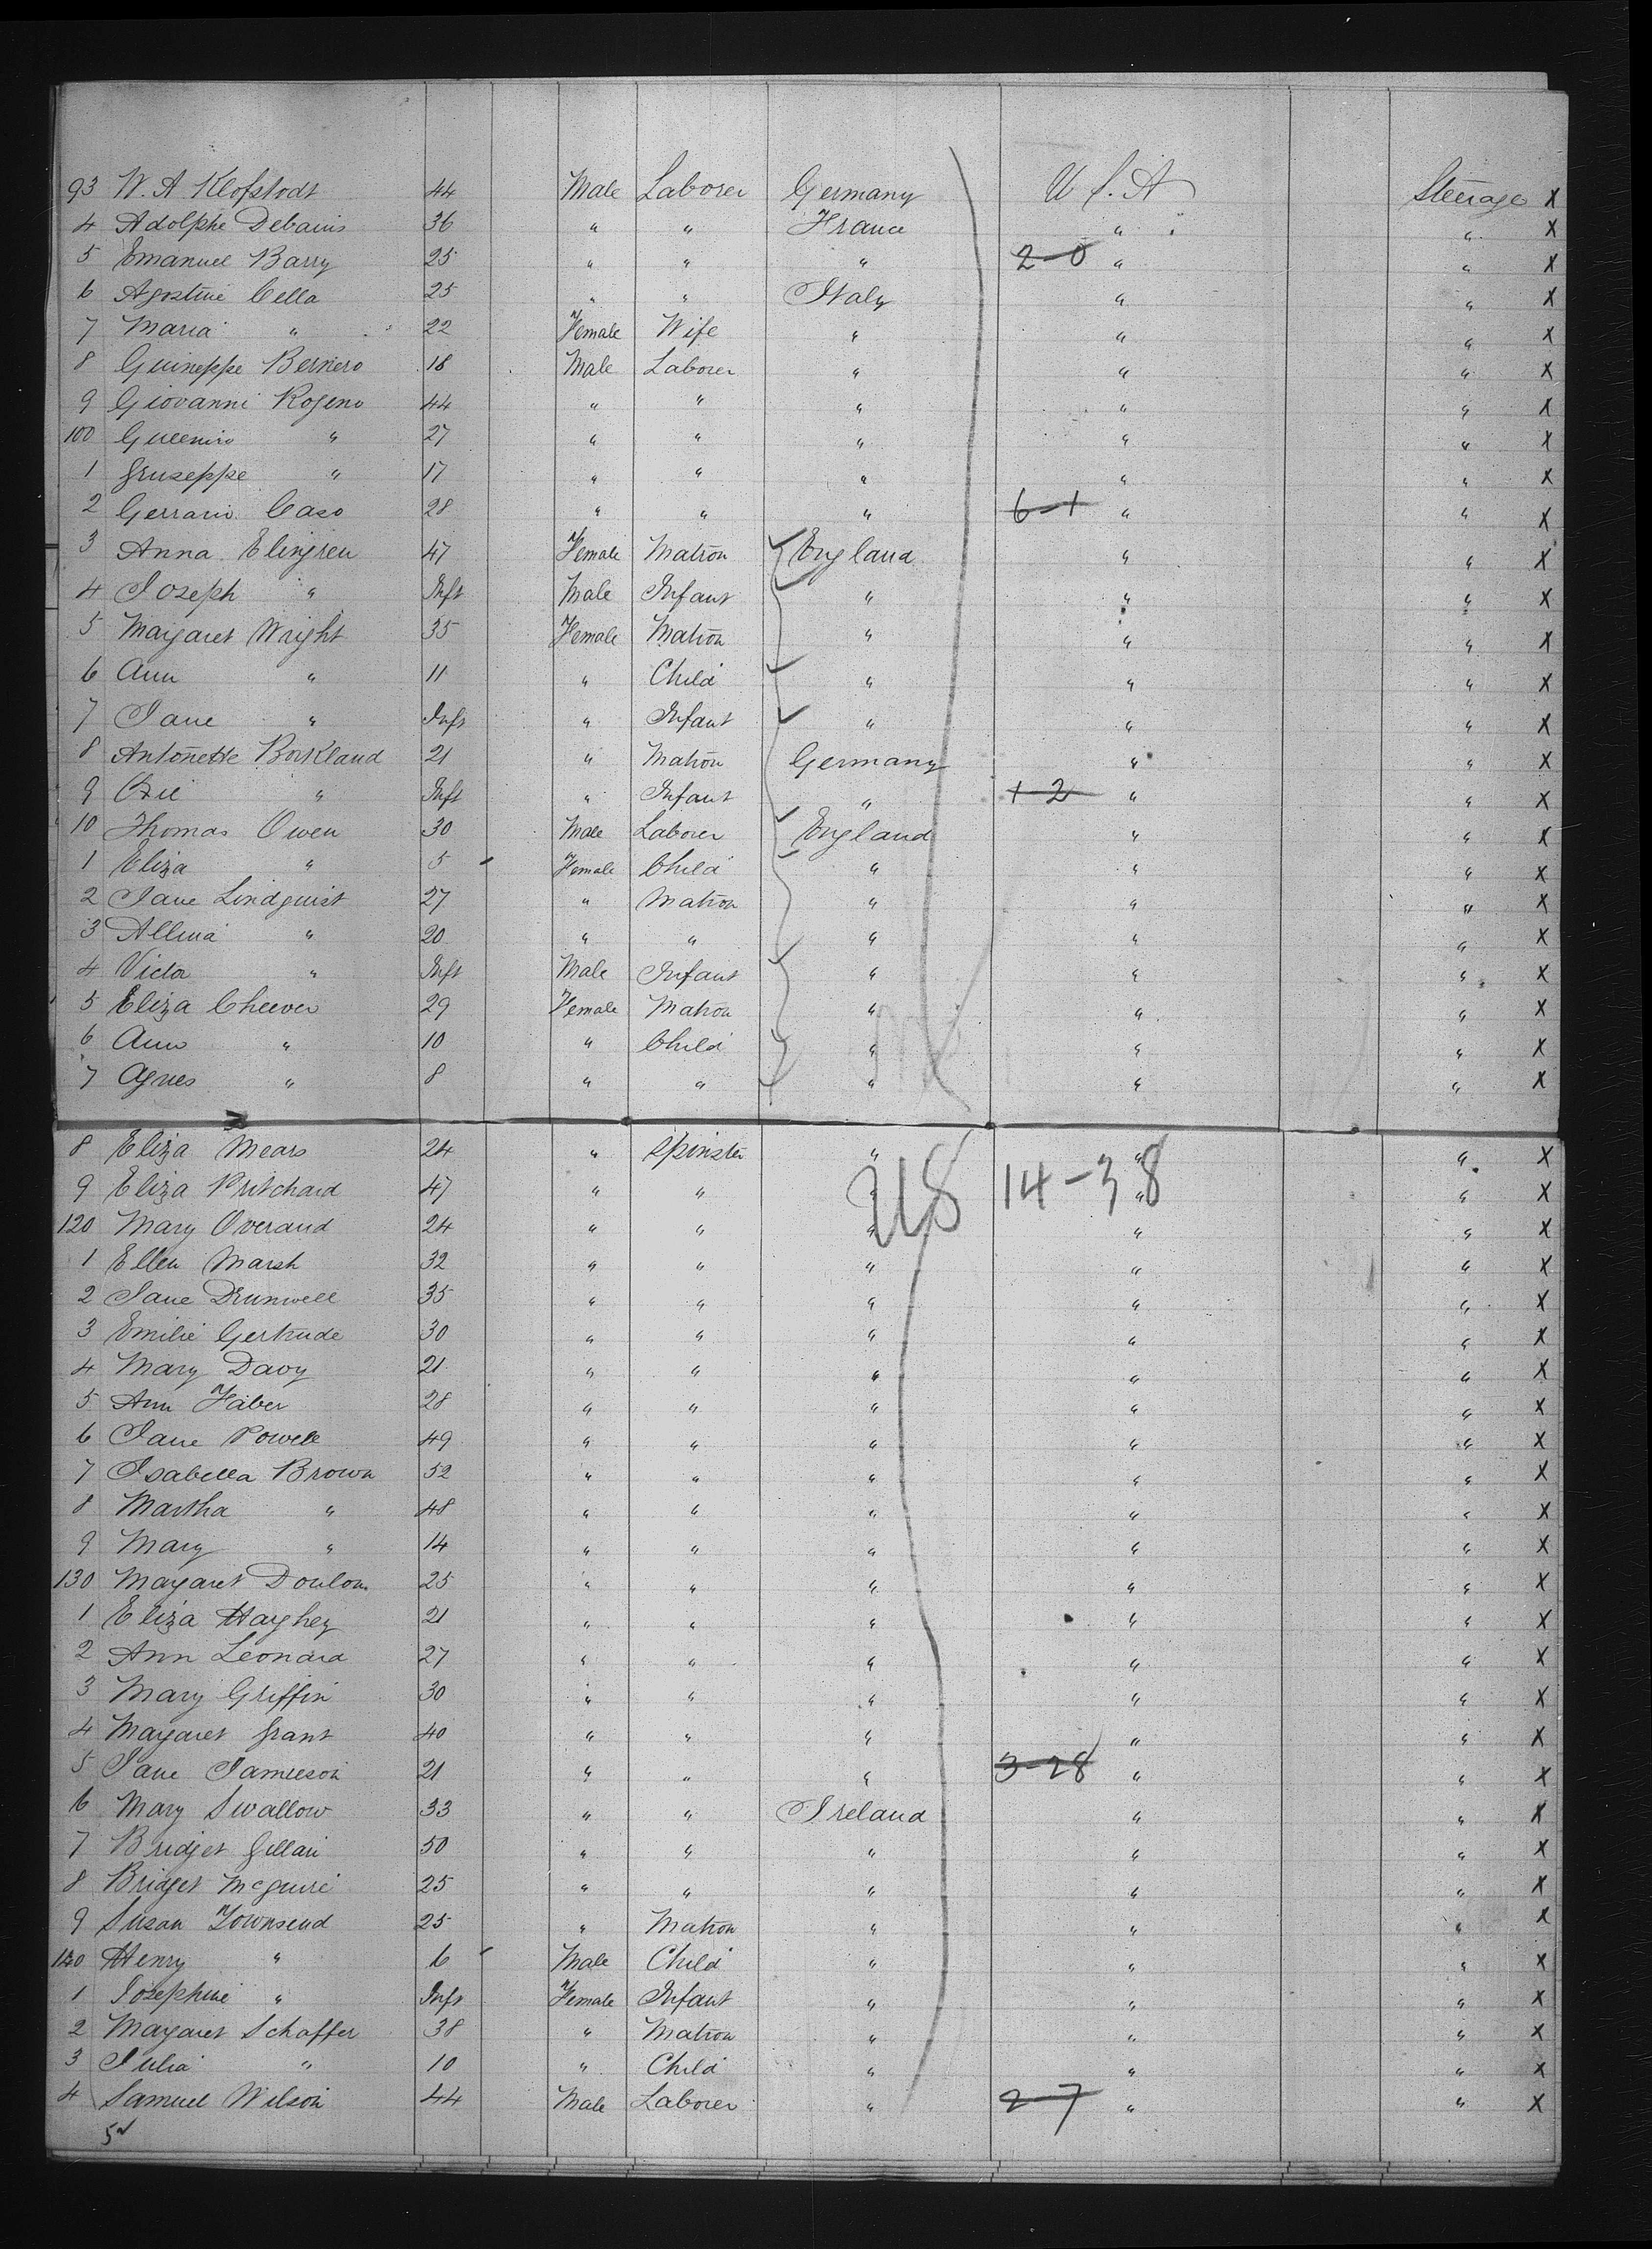 93 W. A Klofstodt 44 Male Laborer Germany U S. A Steerage X
4 Adolphe Debains 36 " " France " " X
5 Emanuel Barry 25 " " " 2-0 " " X
6 Agostine Cella 25 " " Italy " " X
7 Maria " 22 Female Wife " " " X
8 Guineppe Berniero 18 Male Laborer " " " X
9 Giovanni Rogeno 44 " " " " " X
100 " 27 " " " " " X
1 Giuseppe " 17 " " " " " X
2 Gerrario Caso 28 " " " 6-1 " " X
3 Anna Elingren 47 Female Matron England " " X
4 Joseph " Inft Male Infant " " " X
5 Margaret Wright 35 Female Matron " " " X
6 Ann " 11 " Child " " " X
7 Jane " Inft " Infant " " " X
8 Antonette Borkland 21 " Matron Germany " " X
9 " Inft " Infant " 1-2 " " X
10 Thomas Owen 30 Male Laborer England " " X
1 Eliza " 5 Female Child " " " X
2 Jane Lindquist 27 " Matron " " " X
3 Allma " 20 " " " " " X
4 Victor " Inft Male Infant " " " X
5 Eliza Cheever 29 Female Matron " " " X
6 Ann " 10 " Child " " " X
7 Agnes " 8 " " " " " X
8 Eliza Mears 24 " Spinster " " " X
9 Eliza Pritchard 47 " " " US 14-38 " " X
120 Mary Overand 24 " " " " " X
1 Ellen Marsh 32 " " " " " X
2 Jane Drunwell 35 " " " " " X
3 Emilie Gertrude 30 " " " " " X
4 Mary Davy 21 " " " " " X
5 Ann Faber 28 " " " " " X
6 Jane Powell 49 " " " " " X
7 Isabella Brown 52 " " " " " X
8 Martha " 48 " " " " " X
9 Mary " 14 " " " " " X
130 Margaret Doulon 25 " " " " " X
1 Eliza Haghey 21 " " " " " X
2 Ann Leonard 27 " " " " " X
3 Mary Griffin 30 " " " " " X
4 Margaret Grant 40 " " " " " X
5 Jane Jamieson 21 " " " 3-28 " " X
6 Mary Swallow 33 " " Ireland " " X
7 Bridget Gillan 50 " " " " " X
8 Bridget McGuire 25 " " " " " X
9 Susan Townsend 25 " Matron " " " X
140 Henry " 6 Male Child " " " X
1 Josephine " Inft Female Infant " " " X
2 Margaret Schaffer 38 " Matron " " " X
3 Julia " 10 " Child " " " X
4 Samuel Wilson 44 Male Laborer " 2-7 " " X